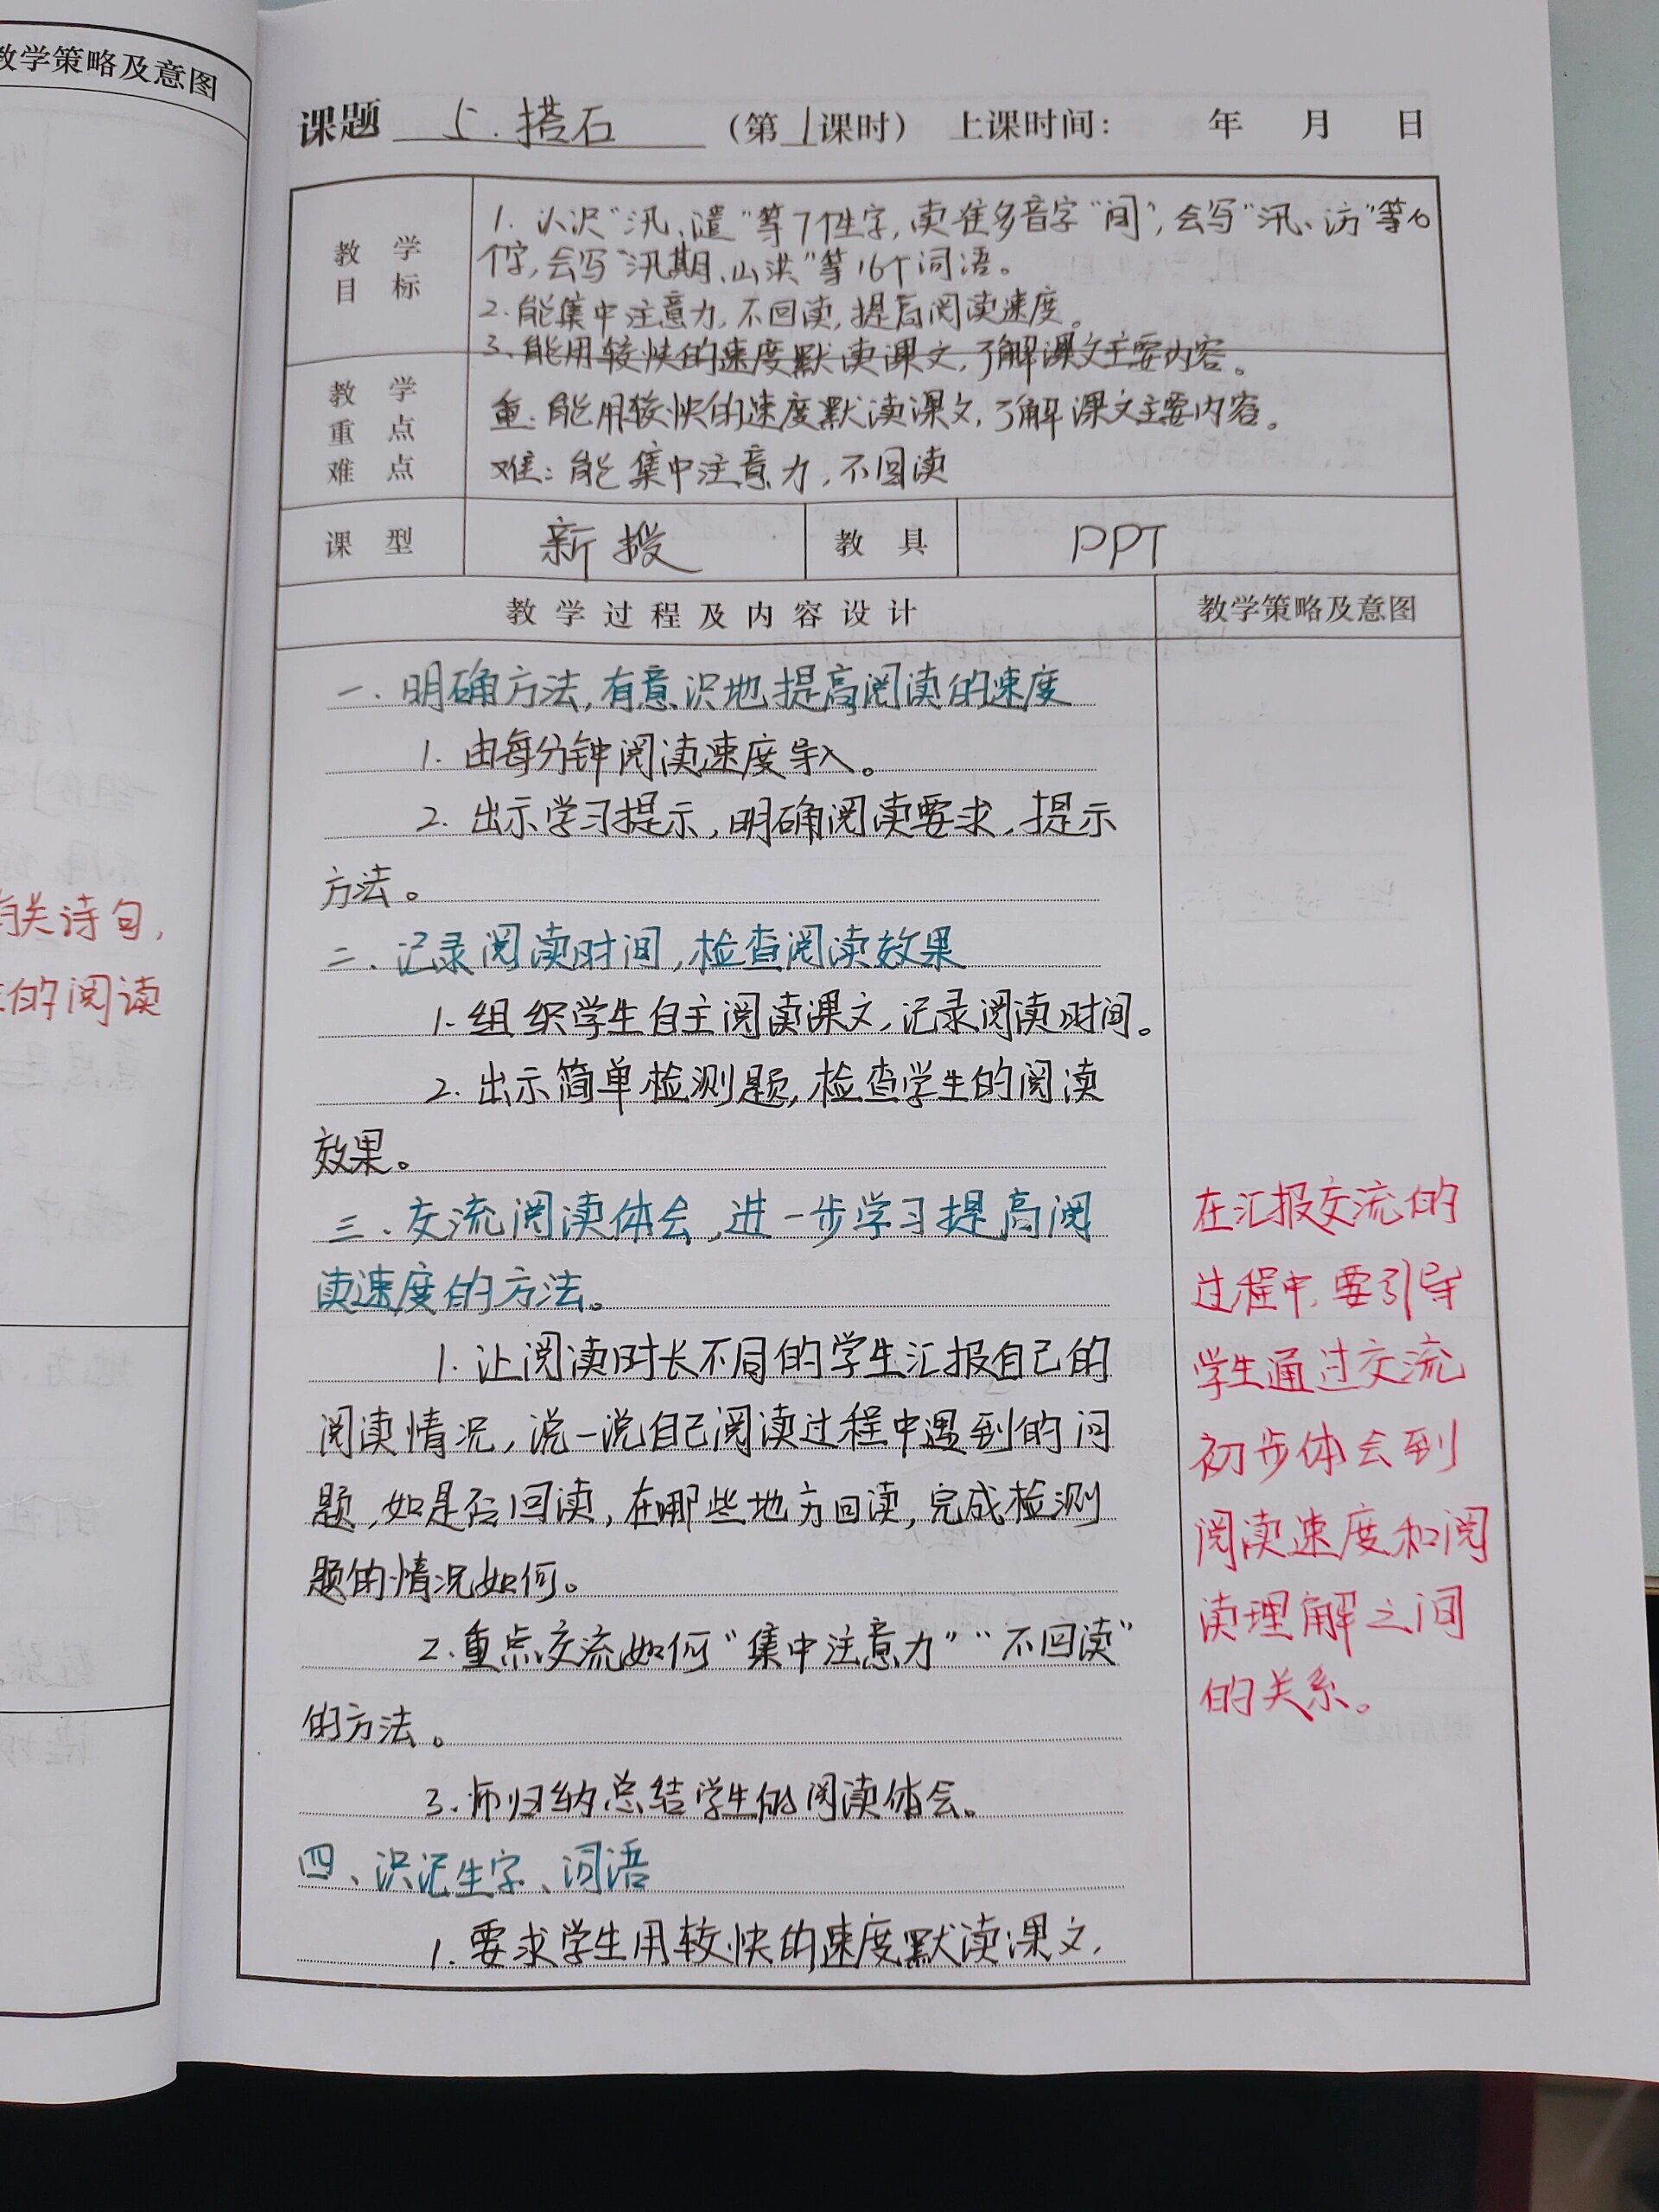 教学策略及意图
有关诗句,
的阅读
课题 5.搭石 (第1课时) 上课时间: 年 月 日
教学目标
1. 认识“汛、谴”等7个生字,读准多音字“间”,会写“汛、访”等
个字,会写“汛期、山洪”等16个词语。
2.能集中注意力,不回读,提高阅读速度。
3.能用较快的速度默读课文,了解课文主要内容。
教学重点难点
重:能用较快的速度默读课文,了解课文主要内容。
难:能集中注意力,不回读
课型 新授 教具 PPT
教学过程及内容设计 教学策略及意图
一、明确方法,有意识地提高阅读的速度
1. 由每分钟阅读速度导入。
2. 出示学习提示,明确阅读要求,提示
方法。
二、记录阅读时间,检查阅读效果
1.组织学生自主阅读课文,记录阅读时间。
2.出示简单检测题,检查学生的阅读
效果。
三、交流阅读体会,进一步学习提高阅
读速度的方法。
1.让阅读时长不同的学生汇报自己的
阅读情况,说一说自己阅读过程中遇到的问
题,如是否回读,在哪些地方回读,完成检测
题的情况如何。
2.重点交流如何“集中注意力”“不回读”
的方法。
3.师归纳总结学生的阅读体会。
四、识记生字、词语
1.要求学生用较快的速度默读课文,
在汇报交流的
过程中,要引导
学生通过交流
初步体会到
阅读速度和阅
读理解之间
的关系。